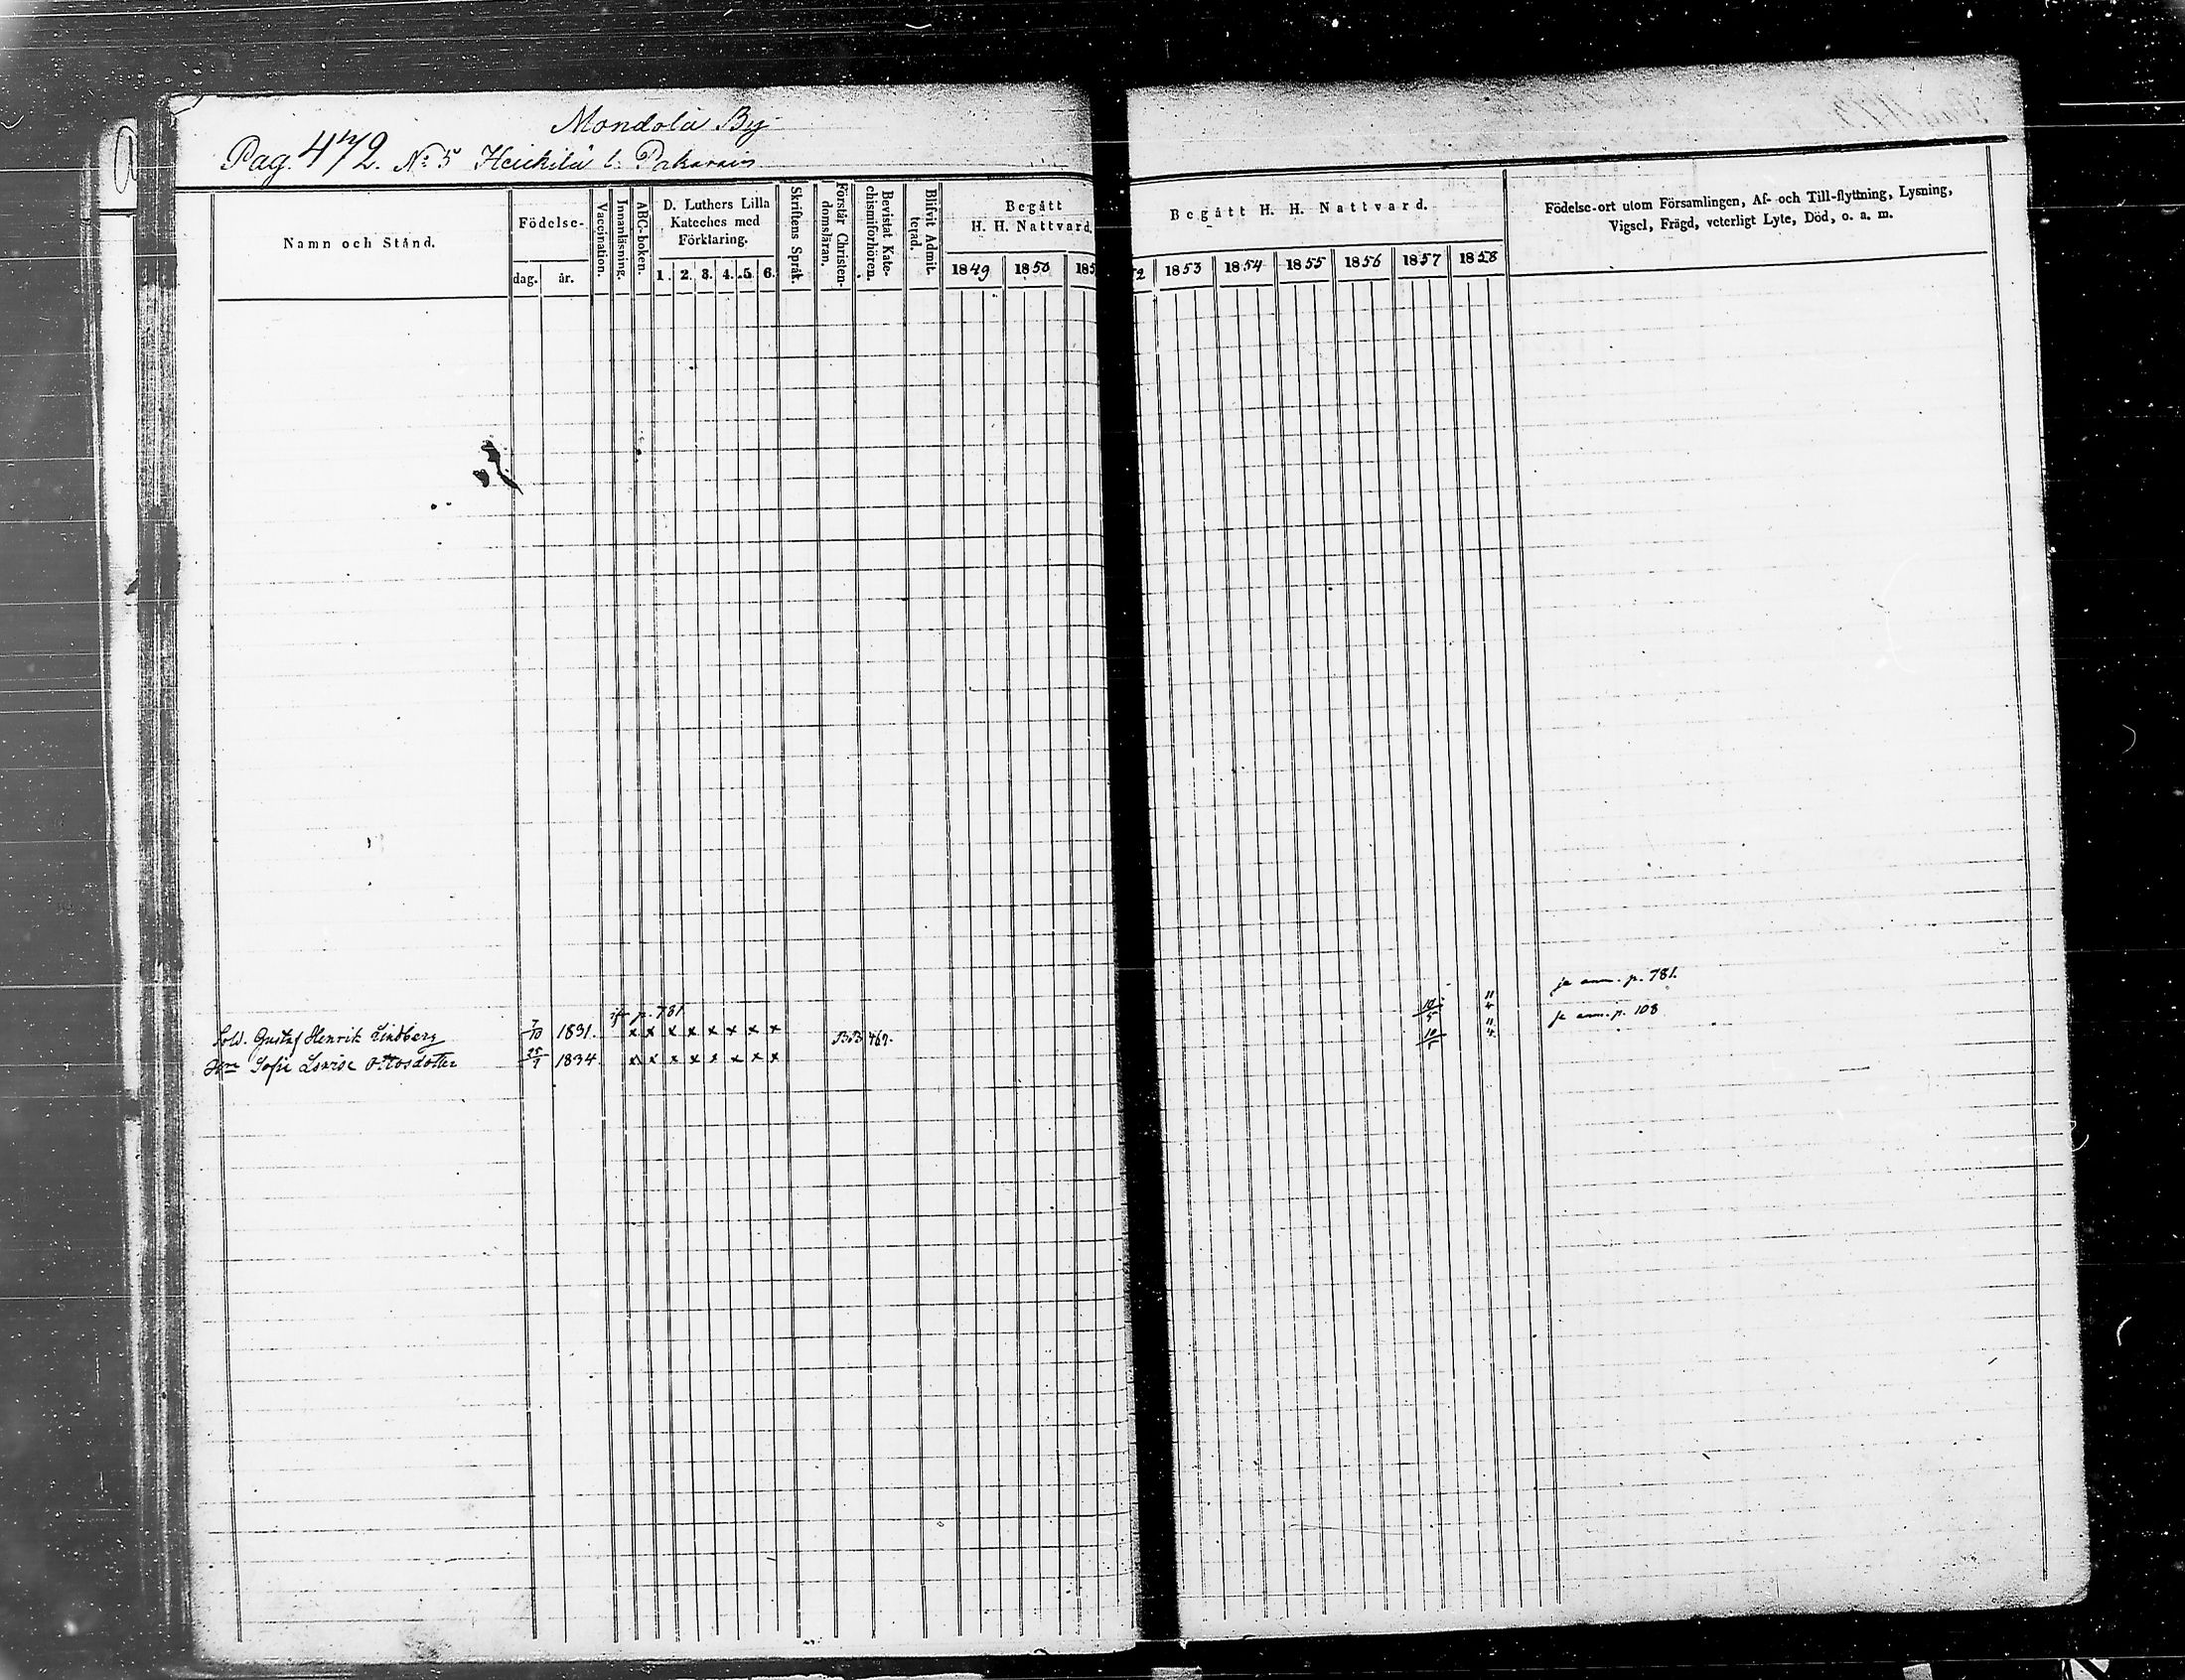 Mondola By
Pag. 472. No 5 Heikilä l. Pakarais
Namn och Stånd.
Födelse-
dag. år.
Vaccination.
Innanläsning.
ABC-boken.
D. Luthers Lilla
Kateches med
Förklaring.
1. 2. 3. 4. 5. 6.
Skriftens Språk.
Förstår Christen-
domsläran.
Bevistat Kate-
chismiförhören.
Blifvit Admit-
terad.
Begått
H. H. Nattvard.
1849 1850 185
Begått H. H. Nattvard.
2 1853 1854 1855 1856 1857 1858
Födelse-ort utom Församlingen, Af- och Till-flyttning, Lysning,
Vigsel, Frägd, veterligt Lyte, Död, o. a. m.
p. 781
Sold. Gustaf Henrik Lindberg 7/10 1831. x x x x x x x x 467. 10/5 11/4 p. 781.
Sofie Lovise Ottosdotter 25/9 1834. x x x x x x x x 10/5 11/4 p. 108